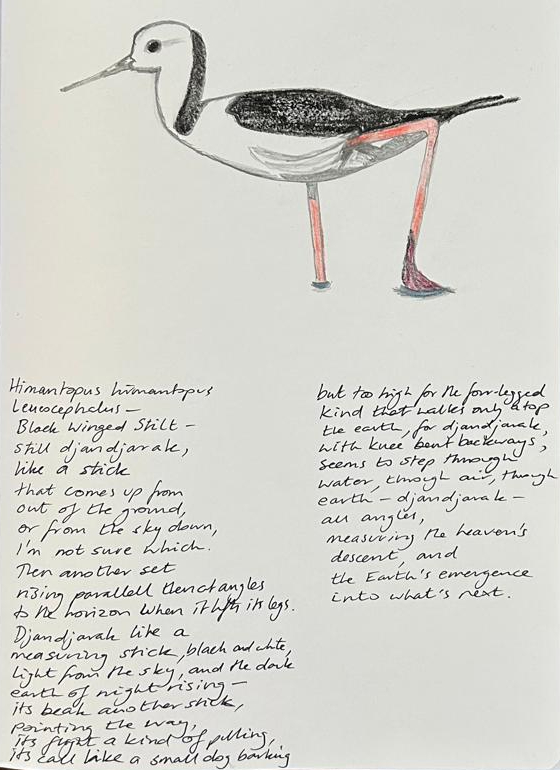 Himantopus himantopus
Leucocephalus –
Black Winged Stilt –
still djandjarak,
like a stick
that comes up from
out of the ground,
or from the sky down,
I'm not sure which.
Then another set
rising parallell then changles
to the horizon when it lifts its legs.
Djandjarak like a
measuring stick, black and white,
light from the sky, and the dark
earth of night rising –
its beak another stick,
pointing the way,
its flight a kind of pulling,
its call like a small dog barking
but too high for the four-legged
kind that walks only atop
the earth, for djandjarak,
with knee bent backways,
seems to step through
water, through air, through
earth – djandjarak –
all angles,
measuring the heaven's
descent, and
the Earth's emergence
into what's next.